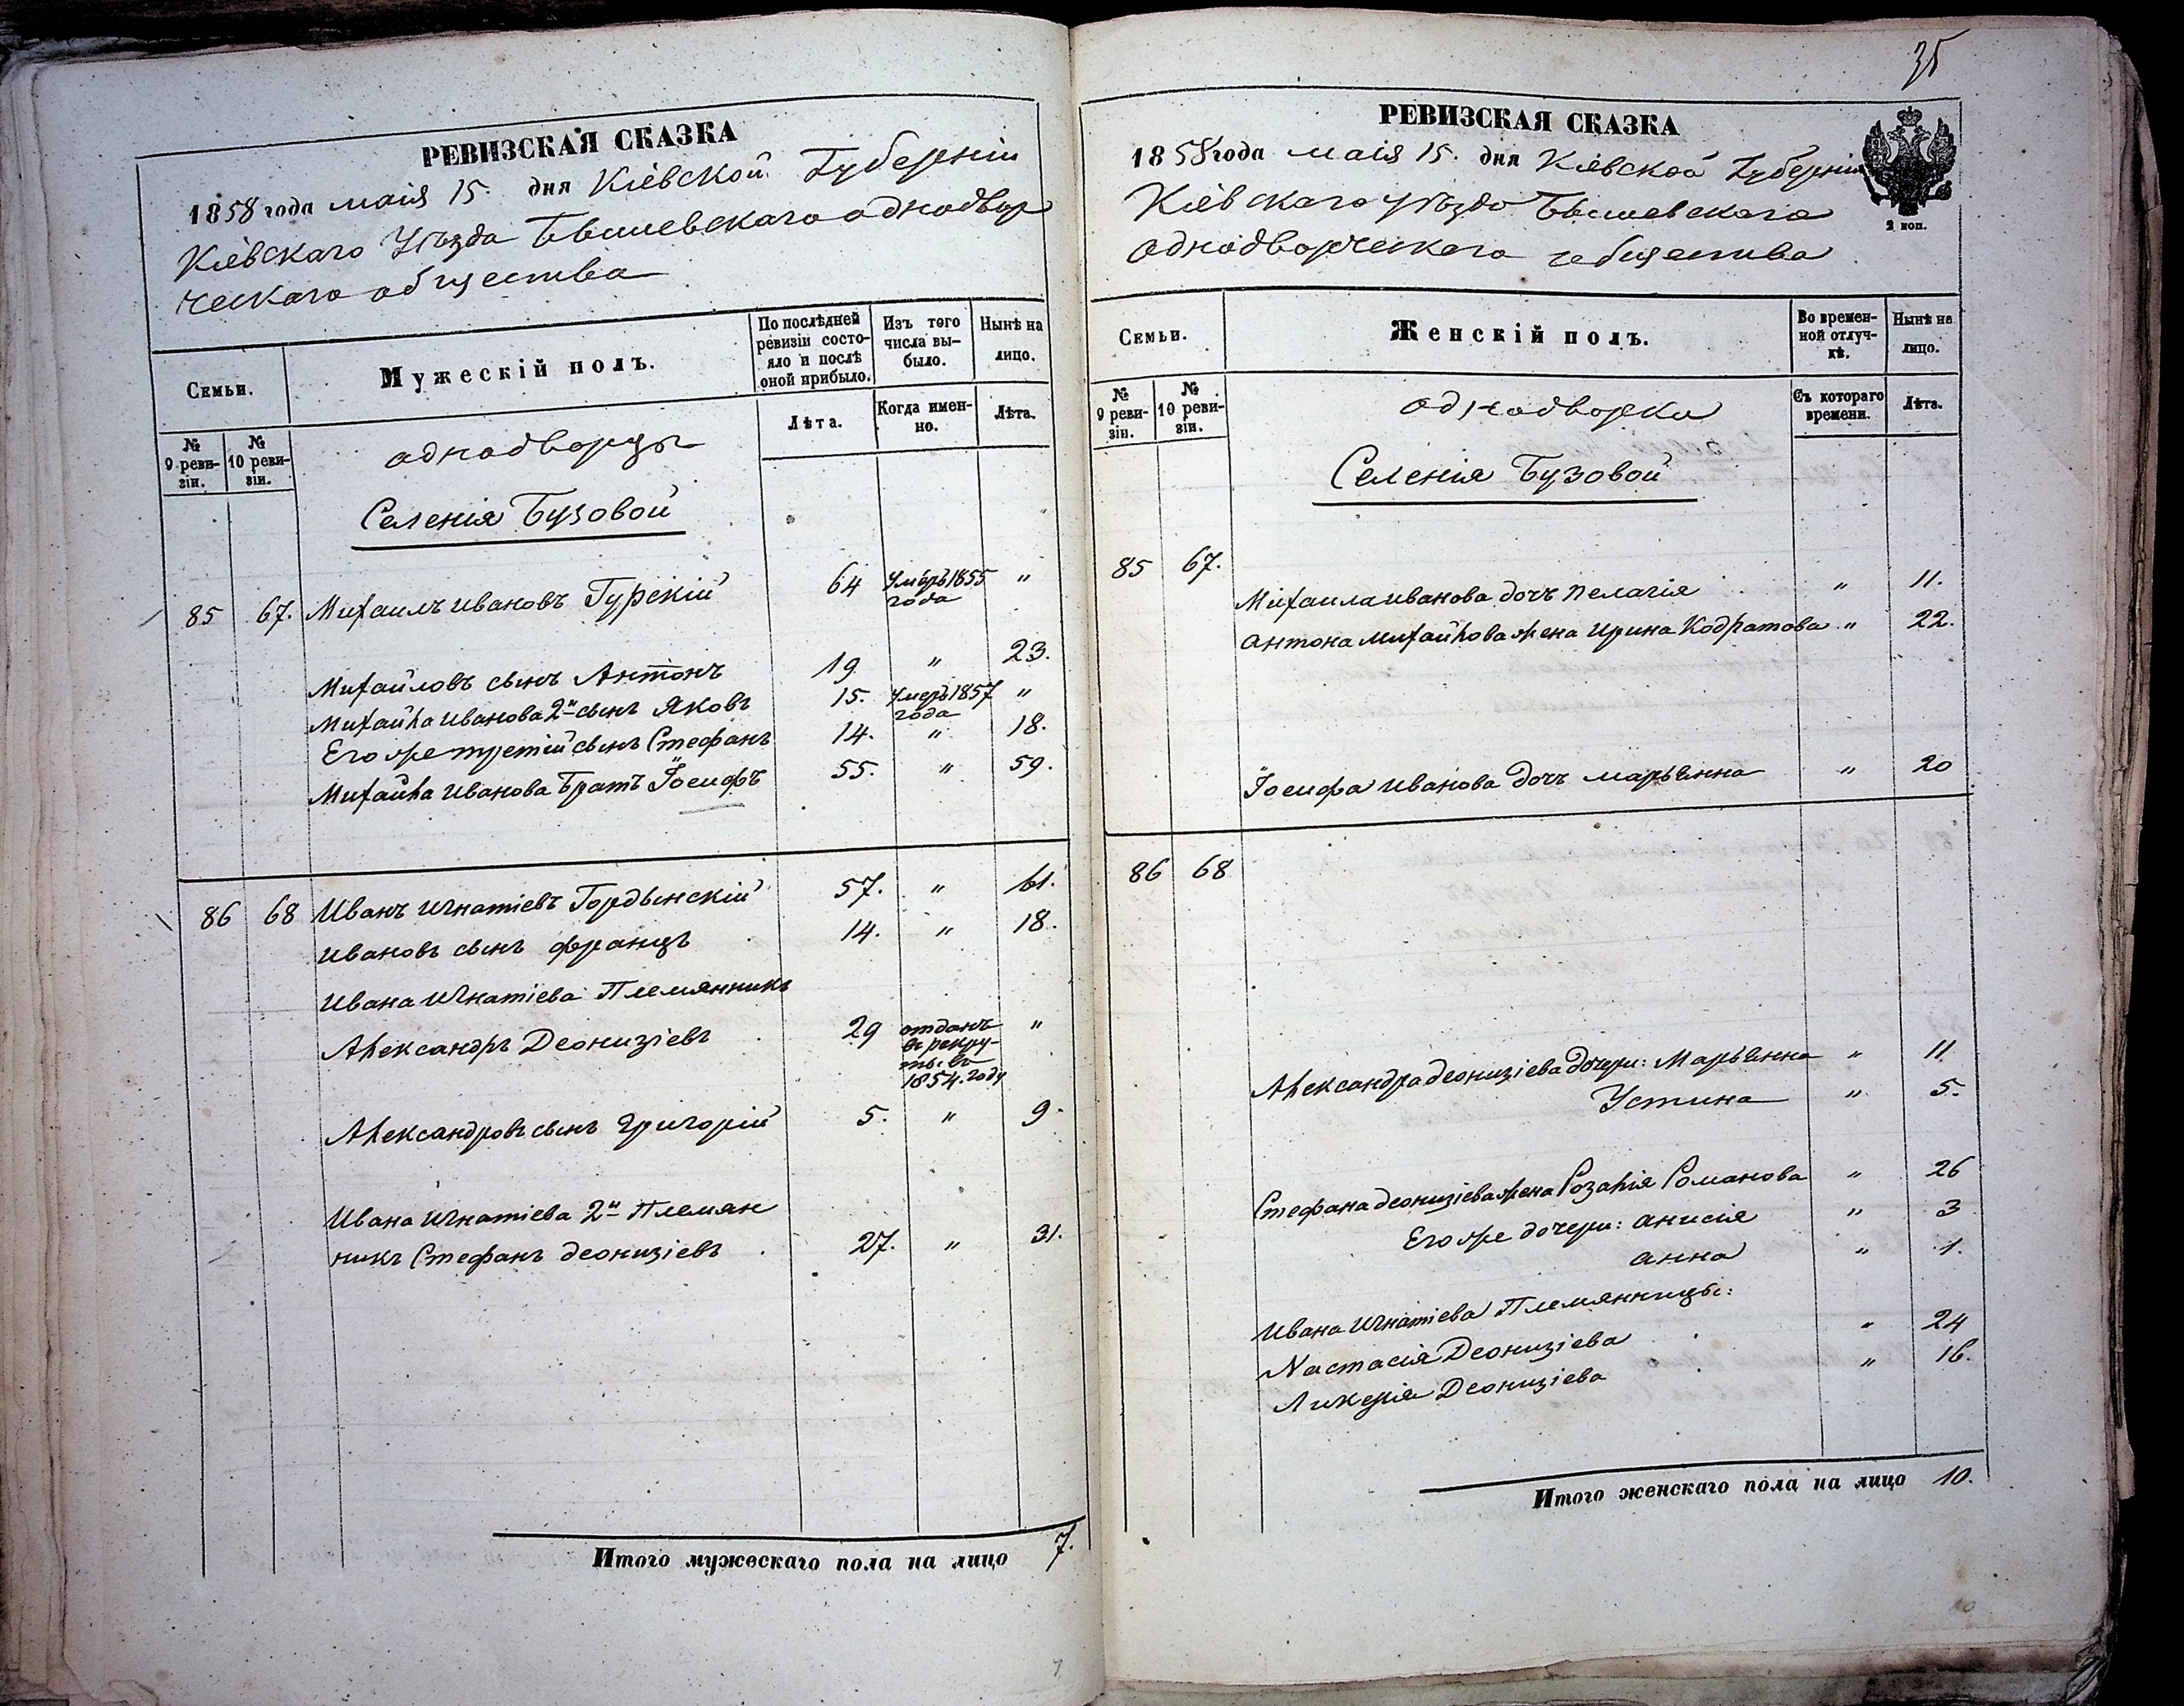 РЕВИЗСКАЯ СКАЗКА
1858 года маія 15. дня Кіевской Губерніи
Кіевскаго Уѣзда Бышевскаго однодвор
ческаго общества
Семьи.
Мужескій полъ.
По послѣдней ревизіи состояло и послѣ оной прибыло.
Изъ того числа выбыло.
Нынѣ на лицо.
№ 9 ревизіи.
№ 10 ревизіи.
Лѣта.
Когда именно.
Лѣта.
однодворцы
Селенія Бузовой
85 67. Михаилъ Ивановъ Гурскій 64 Умеръ 1855 года "
Михайловъ сынъ Антонъ 19 " 23.
Михайла Иванова 2й сынъ Яковъ 15. Умеръ 1857 года "
Его же третій сынъ Стефанъ 14. " 18.
Михайла Иванова Братъ Іосифъ 55. " 59.
86 68 Иванъ Игнатіевъ Гордынскій 57. " 61.
Ивановъ сынъ Францъ 14. " 18.
Ивана Игнатіева Племянникъ
Александръ Деонизіевъ 29 отданъ в рекруты в 1854. году "
Александровъ сынъ Григорій 5. " 9.
Ивана Игнатіева 2й Племян
никъ Стефанъ Деонизіевъ 27. " 31.
Итого мужескаго пола на лицо 7.
7
35
РЕВИЗСКАЯ СКАЗКА
1858 года маія 15. дня Кіевской Губерніи
Кіевскаго Уѣзда Бышевскаго
однодворческаго общества
2 коп.
Семьи.
Женскій полъ.
Во временной отлучкѣ.
Нынѣ на лицо.
№ 9 ревизіи.
№ 10 ревизіи.
Съ котораго времени.
Лѣта.
однодворки
Селенія Бузовой
85 67.
Михаила Иванова дочъ Пелагія " 11.
Антона Михайлова жена Ирина Кодратова " 22.
Іосифа Иванова дочъ Марьянна " 20
86 68
Александра Деонизіева дочери: Марьянна " 11
Устина " 5.
Стефана Деонизіева жена Розалія Романова " 26
Его же дочери: Анисія " 3
Анна " 1.
Ивана Игнатіева Племянницы:
Настасія Деонизіева " 24
Ликерія Деонизіева " 16.
Итого женскаго пола на лицо 10.
10